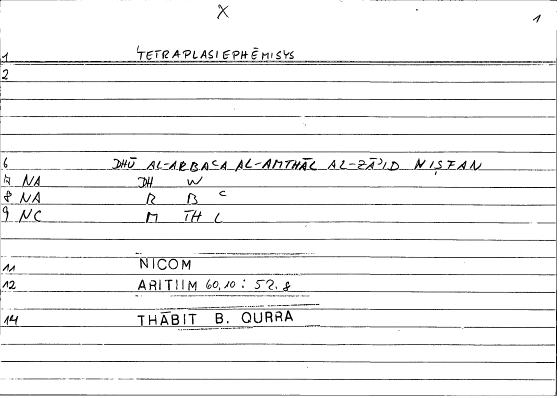 X 1
1 TETRAPLASIEPHĒMISYS
2
6 DHŪ AL-ARBACA AL-AMTHĀL AL-ZĀʾID NIṢFAN
7 NA DH W
8 NA R B C
9 NC M TH L
11 NICOM
12 ARITIIM 60,10 : 52.8
14 THĀBIT B. QURRA